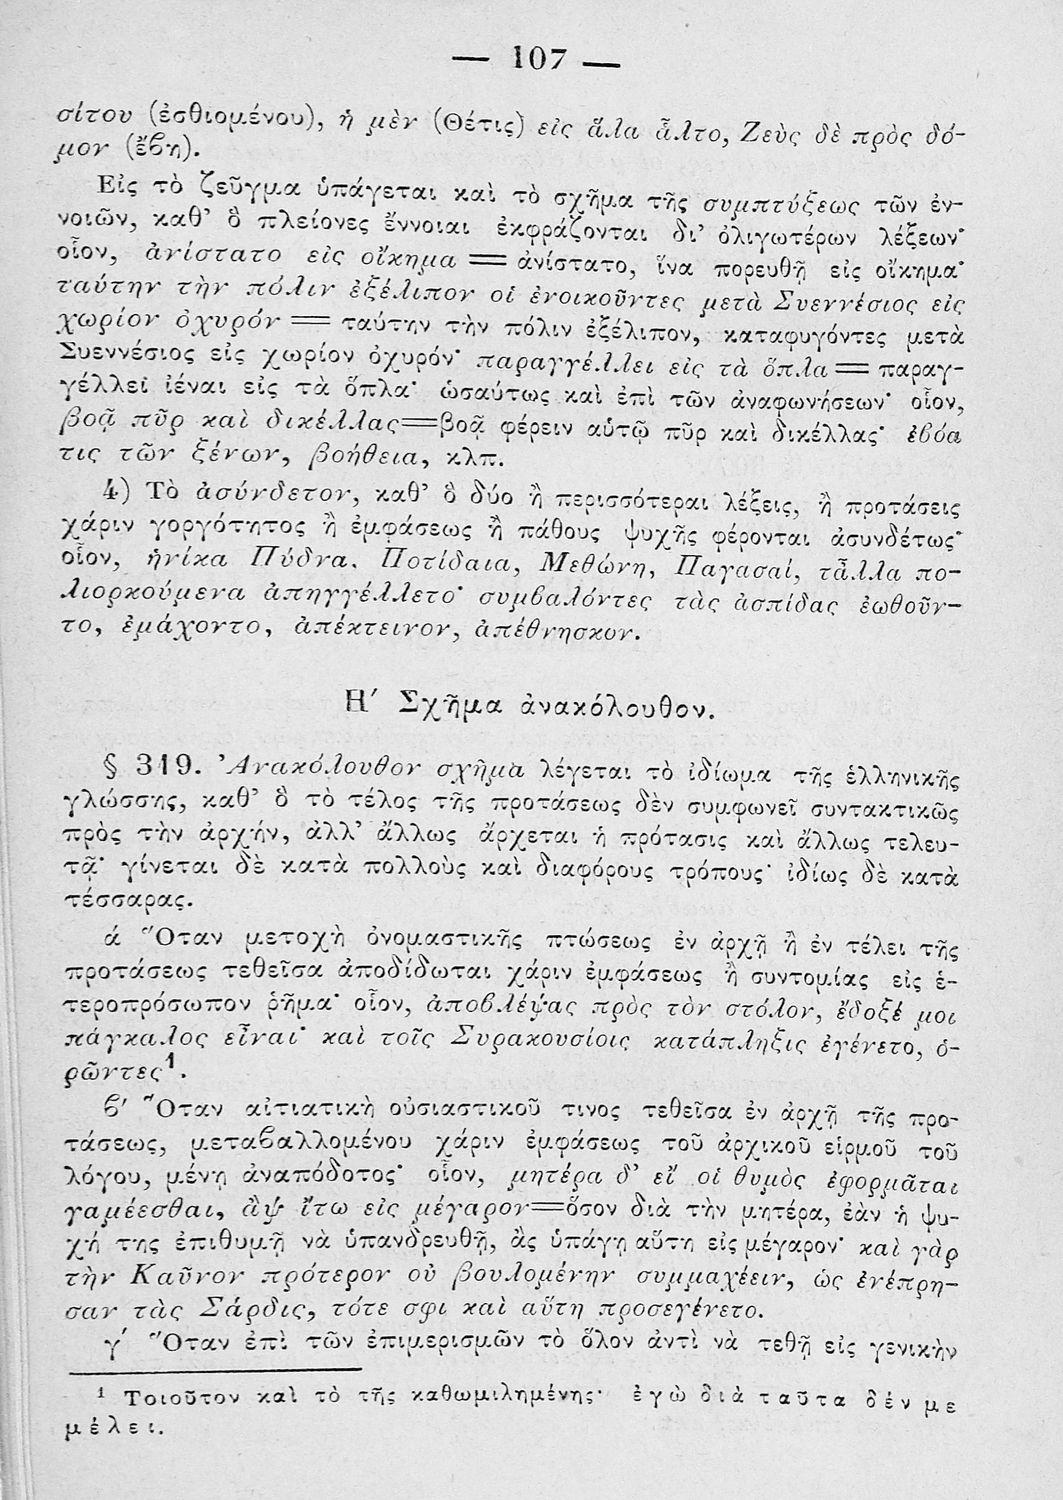 — 107 —
σίτου (ἐσθιομένου), ἡ μὲν (Θέτις) εἰς ἅλα ἆλτο, Ζεὺς δὲ πρὸς δό-
μον (ἔβη).
Εἰς τὸ ζεῦγμα ὑπάγεται καὶ τὸ σχῆμα τῆς συμπτύξεως τῶν ἐν-
νοιῶν, καθ’ ὃ πλείονες ἔννοιαι ἐκφράζονται δι’ ὀλιγωτέρων λέξεων·
οἷον, ἀνίστατο εἰς οἴκημα = ἀνίστατο, ἵνα πορευθῇ εἰς οἴκημα·
ταύτην τὴν πόλιν ἐξέλιπον οἱ ἐνοικοῦντες μετὰ Συεννέσιος εἰς
χωρίον ὀχυρόν = ταύτην τὴν πόλιν ἐξέλιπον, καταφυγόντες μετὰ
Συεννέσιος εἰς χωρίον ὀχυρόν· παραγγέλλει εἰς τὰ ὅπλα = παραγ-
γέλλει ἰέναι εἰς τὰ ὅπλα· ὡσαύτως καὶ ἐπὶ τῶν ἀναφωνήσεων· οἷον,
βοᾷ πῦρ καὶ δικέλλας = βοᾷ φέρειν αὑτῷ πῦρ καὶ δικέλλας· ἐβόα
τις τῶν ξένων, βοήθεια, κλπ.
4) Τὸ ἀσύνδετον, καθ’ ὃ δύο ἢ περισσότεραι λέξεις, ἢ προτάσεις
χάριν γοργότητος ἢ ἐμφάσεως ἢ πάθους ψυχῆς φέρονται ἀσυνδέτως·
οἷον, ἡνίκα Πύδνα. Ποτίδαια, Μεθώνη, Παγασαί, τἆλλα πο-
λιορκούμενα ἀπηγγέλλετο· συμβαλόντες τὰς ἀσπίδας ἐωθοῦν-
το, ἐμάχοντο, ἀπέκτεινον, ἀπέθνησκον.
Η′ Σχῆμα ἀνακόλουθον.
§ 319. Ἀνακόλουθον σχῆμα λέγεται τὸ ἰδίωμα τῆς ἑλληνικῆς
γλώσσης, καθ’ ὃ τὸ τέλος τῆς προτάσεως δὲν συμφωνεῖ συντακτικῶς
πρὸς τὴν ἀρχήν, ἀλλ’ ἄλλως ἄρχεται ἡ πρότασις καὶ ἄλλως τελευ-
τᾷ· γίνεται δὲ κατὰ πολλοὺς καὶ διαφόρους τρόπους· ἰδίως δὲ κατὰ
τέσσαρας.
ά Ὅταν μετοχὴ ὀνομαστικῆς πτώσεως ἐν ἀρχῇ ἢ ἐν τέλει τῆς
προτάσεως τεθεῖσα ἀποδίδωται χάριν ἐμφάσεως ἢ συντομίας εἰς ἑ-
τεροπρόσωπον ῥῆμα· οἷον, ἀποβλέψας πρὸς τὸν στόλον, ἔδοξέ μοι
πάγκαλος εἶναι· καὶ τοῖς Συρακουσίοις κατάπληξις ἐγένετο, ὁ-
ρῶντες¹.
β′ Ὅταν αἰτιατικὴ οὐσιαστικοῦ τινος τεθεῖσα ἐν ἀρχῇ τῆς προ-
τάσεως, μεταβαλλομένου χάριν ἐμφάσεως τοῦ ἀρχικοῦ εἱρμοῦ τοῦ
λόγου, μένῃ ἀναπόδοτος· οἷον, μητέρα δ’ εἴ οἱ θυμὸς ἐφορμᾶται
γαμέεσθαι, ἂψ ἴτω εἰς μέγαρον = ὅσον διὰ τὴν μητέρα, ἐὰν ἡ ψυ-
χή της ἐπιθυμῇ νὰ ὑπανδρευθῇ, ἂς ὑπάγῃ αὕτη εἰς μέγαρον· καὶ γὰρ
τὴν Καῦνον πρότερον οὐ βουλομένην συμμαχέειν, ὡς ἐνέπρη-
σαν τὰς Σάρδις, τότε σφι καὶ αὕτη προσεγένετο.
γ′ Ὅταν ἐπὶ τῶν ἐπιμερισμῶν τὸ ὅλον ἀντὶ νὰ τεθῇ εἰς γενικὴν
¹ Τοιοῦτον καὶ τὸ τῆς καθωμιλημένης· ἐγὼ διὰ ταῦτα δέν με
μέλει.